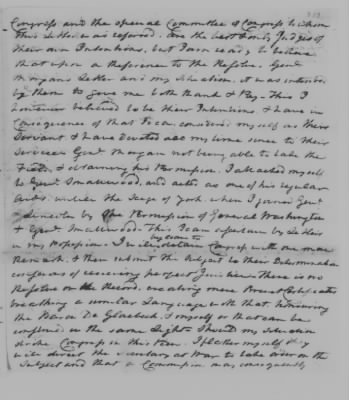 Congress and the special Committee of Congress to whom
this Letter was referred. are the best Judges of
their own Intentions, but I am ready to believe
that upon a Reference to the Resolve. Genl
Morgans Letter and my Situation. it was intended
by them to give me both Rank & Pay. This I
however believed to be their Intentions & have in
Consequence of that considered myself as their
Servant. & have devoted all my time since to their
Services Genl Morgan not being able to take the
Field, & obtaining his Permission. I attached myself
to Genl Smallwood, and acted as one of his regular
Aids. until the Siege of York. when I joined Genl
Lincoln by Permission of General Washington
& Genl Smallwood. This I can ascertain by Letters
in my Possession. I will detain Congress with one more
Remark. & then submit the Subject to their Determination
confident of receiving perfect Justice. There is no
Resolve on the Record. creating mere Brevet
breathing a similar Language with that, honouring
the Baron De Glaubeck. & myself or that can be
construed in the same Light. Should my Situation
strike Congress in this View. I flatter myself they
will direct the Secretary at War to take order on the
Subject and that a Commission may consequently